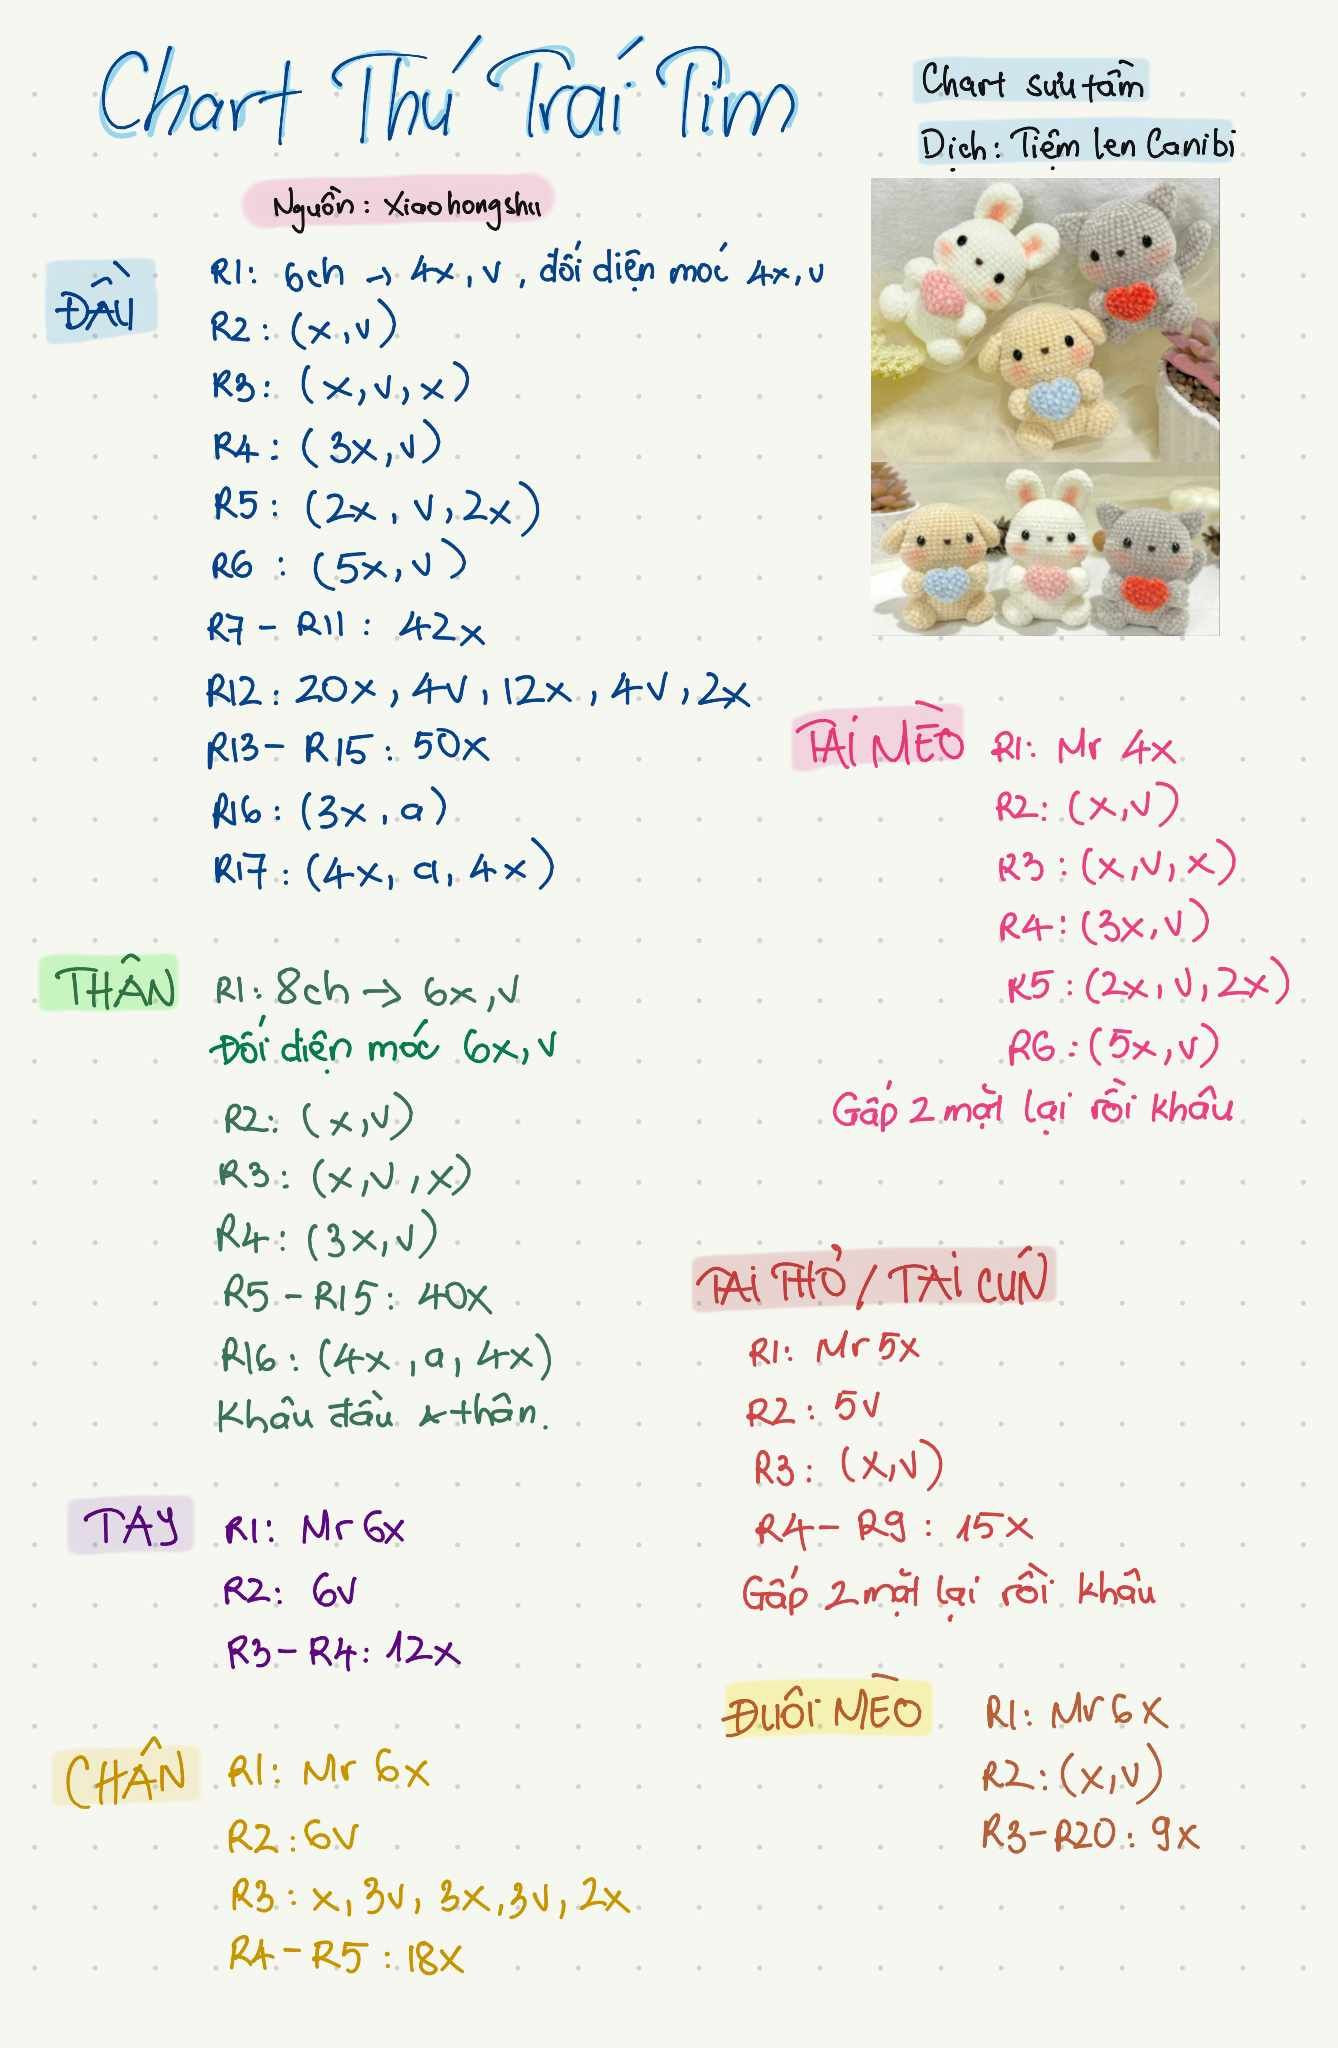 Chart Thú Trái Tim
Chart sưu tầm
Dịch: Tiệm len Canibi
Nguồn: Xiaohongshu
ĐẦU
R1: 6ch → 4x, v, đối diện moć 4x, v
R2: (x, v)
R3: (x, v, x)
R4: (3x, v)
R5: (2x, v, 2x)
R6: (5x, v)
R7 - R11: 42x
R12: 20x, 4v, 12x, 4v, 2x
R13 - R15: 50x
R16: (3x, a)
R17: (4x, a, 4x)
THÂN
R1: 8ch → 6x, v
Đối diện móc 6x, v
R2: (x, v)
R3: (x, v, x)
R4: (3x, v)
R5 - R15: 40x
R16: (4x, a, 4x)
Khâu đầu & thân.
TAY
R1: Mr 6x
R2: 6v
R3 - R4: 12x
CHÂN
R1: Mr 6x
R2: 6v
R3: x, 3v, 3x, 3v, 2x
R4 - R5: 18x
TAI MÈO
R1: Mr 4x
R2: (x, v)
R3: (x, v, x)
R4: (3x, v)
R5: (2x, v, 2x)
R6: (5x, v)
Gấp 2 mặt lại rồi khâu
TAI THỎ / TAI CÚN
R1: Mr 5x
R2: 5v
R3: (x, v)
R4 - R9: 15x
Gấp 2 mặt lại rồi khâu
ĐUÔI MÈO
R1: Mr 6x
R2: (x, v)
R3 - R20: 9x